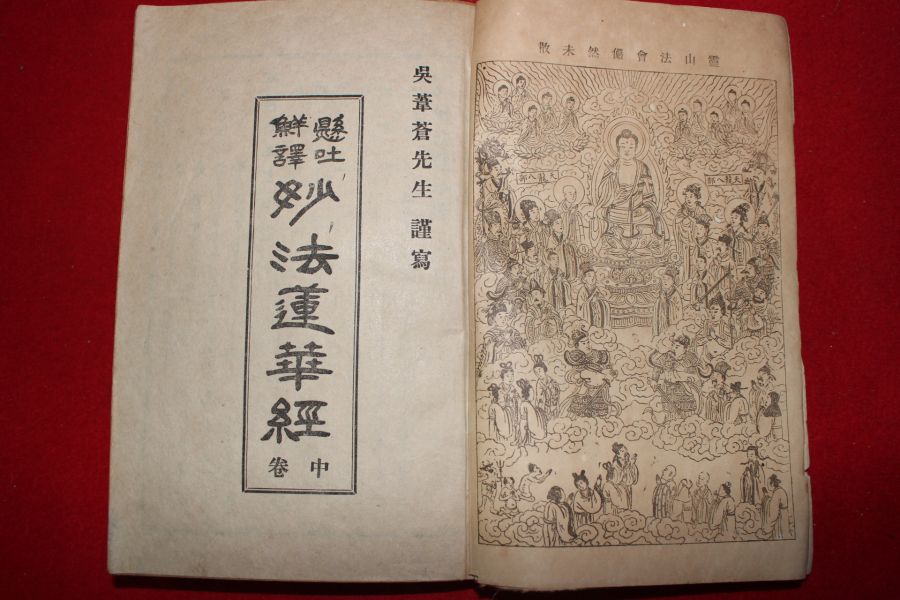 靈山法會儼然未散
天龍八部
天龍八部
吳葦蒼先生 謹寫
懸吐
鮮譯
妙法蓮華經
中卷